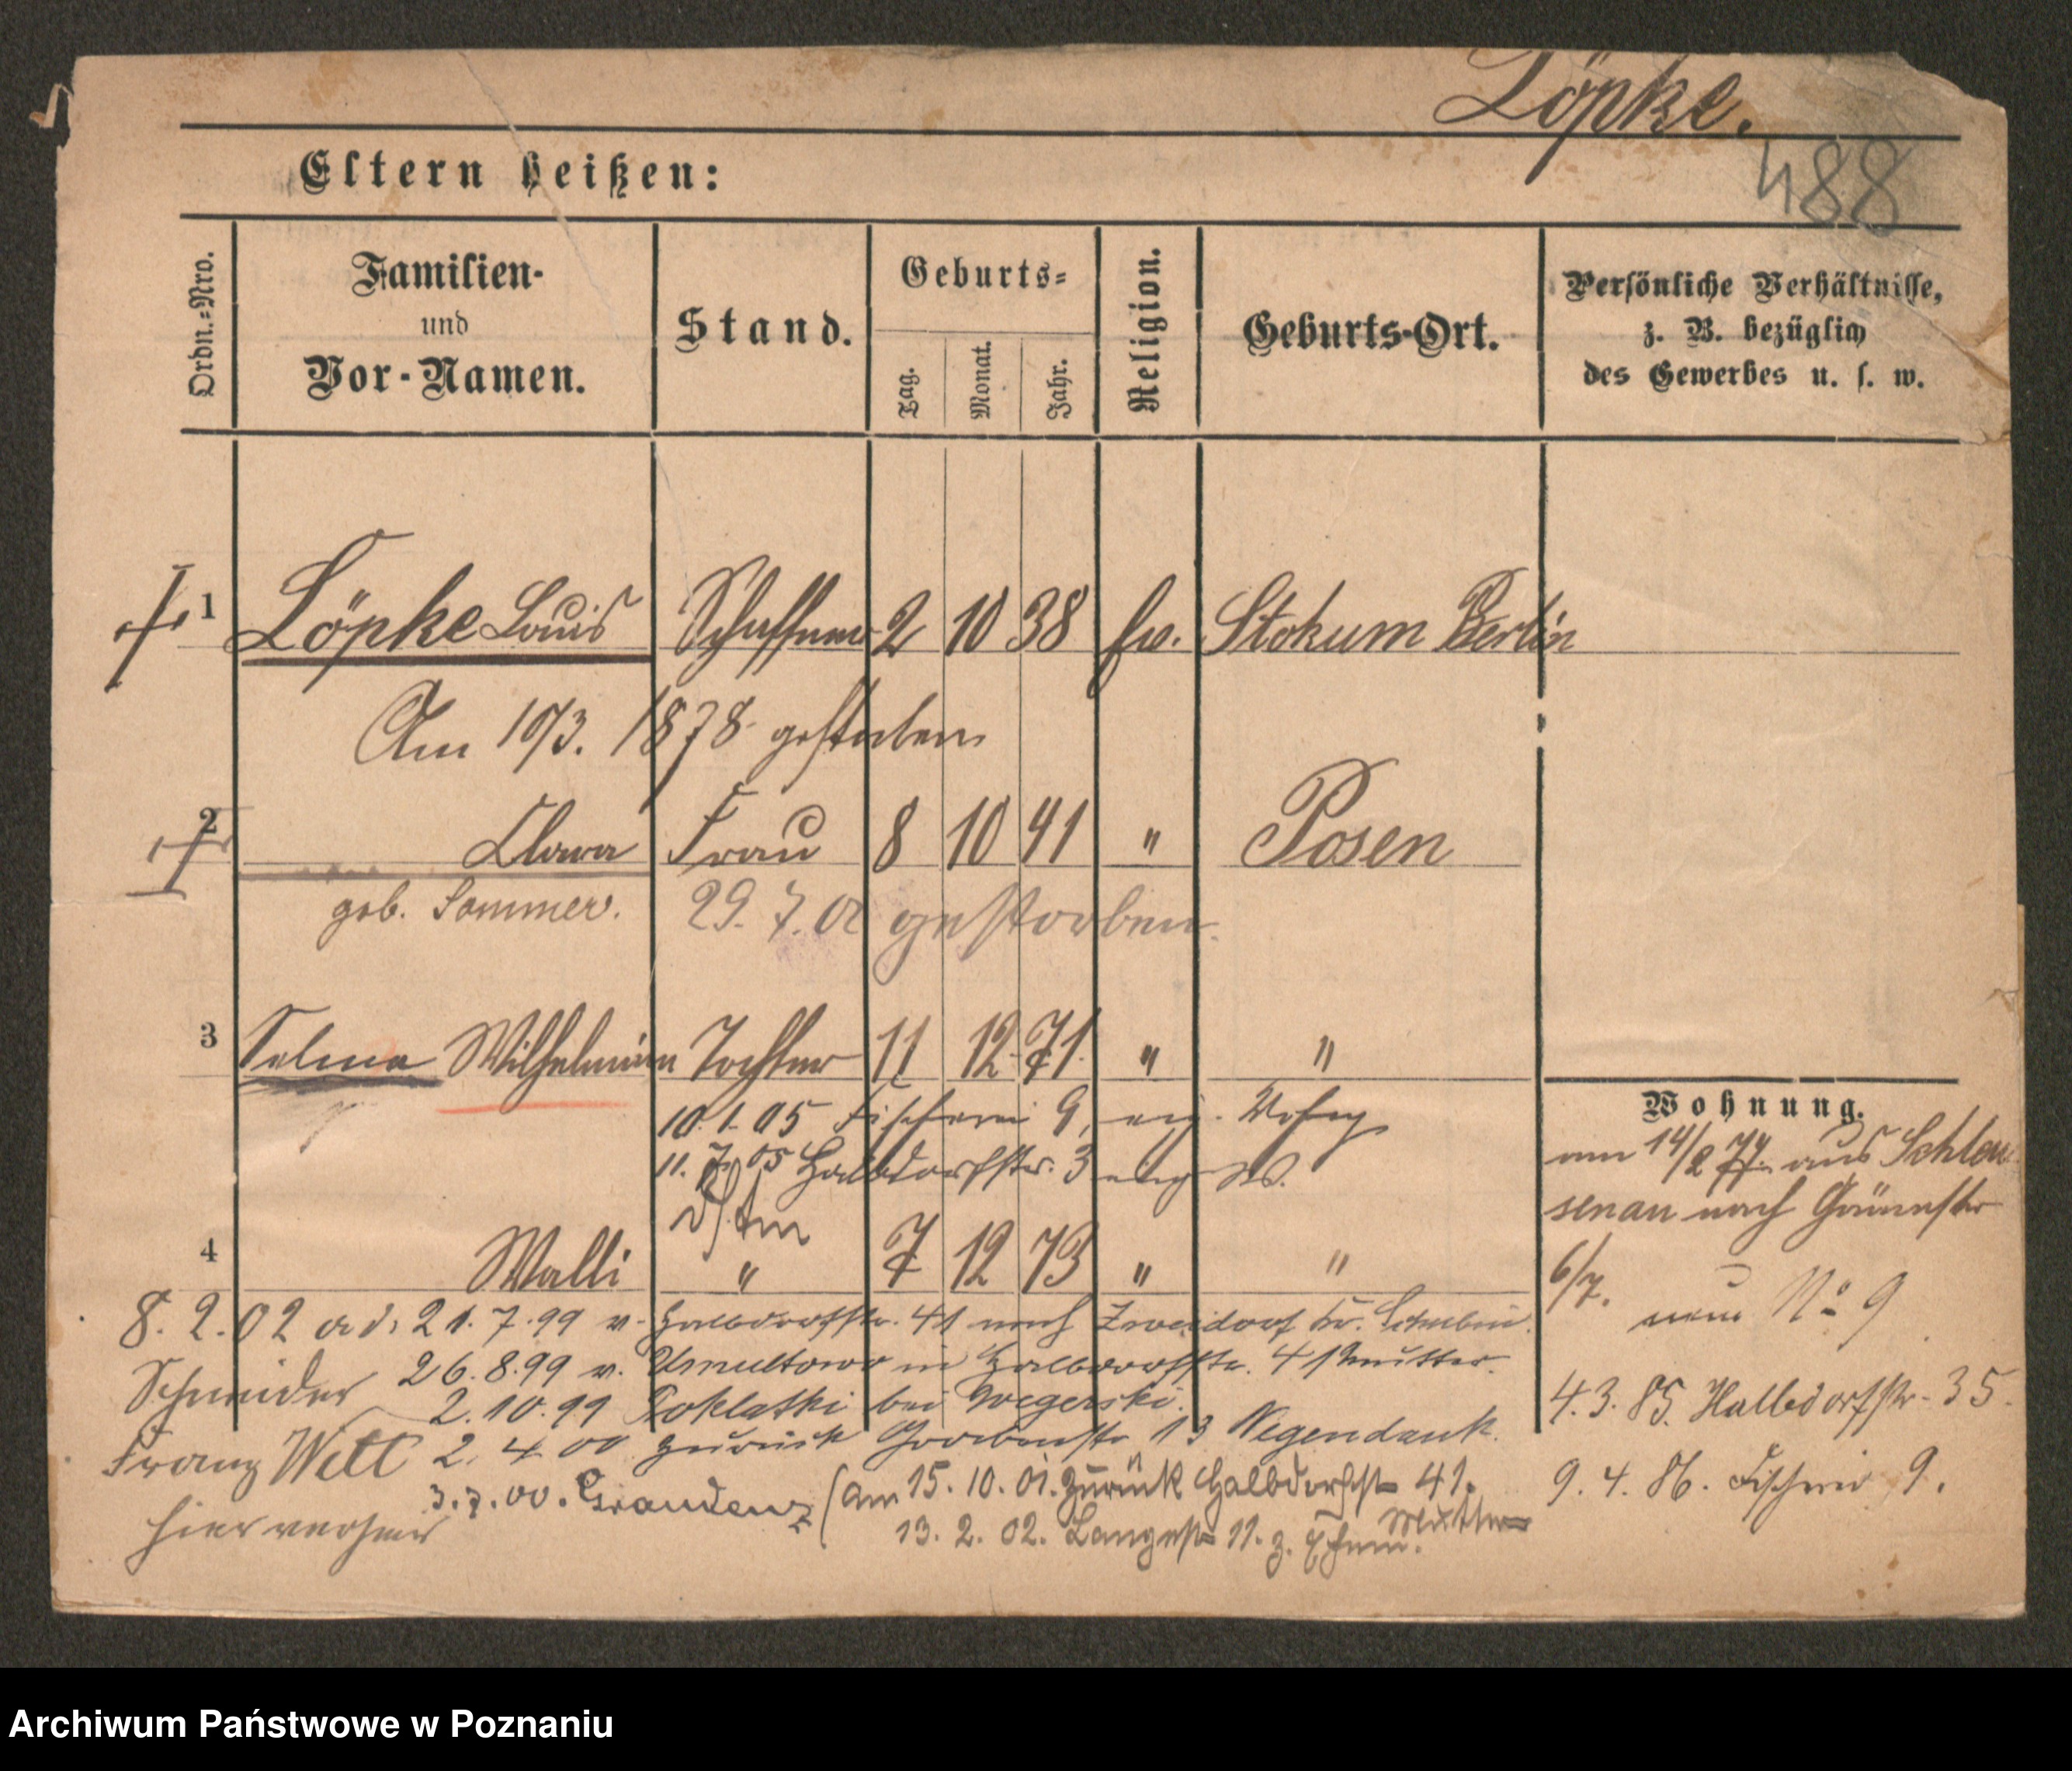 Löpke.
488
Eltern heißen:
Ordn.-Nro.
Familien-
und
Vor-Namen.
Stand.
Geburts-
Tag.
Monat.
Jahr.
Religion.
Geburts-Ort.
Persönliche Verhältnisse,
z. B. bezüglich
des Gewerbes u. s. w.
1 Löpke Louis Schaffner 2 10 38 ev. Stokum Berlin
Am 10/3. 1878 gestorben
2 Clara Frau 8 10 41 " Posen
geb. Sommer. 29. 7. 01 gestorben.
3 Selma Wilhelmine Tochter 11 12 71. " "
10. 1. 05 Fischerei 9, eig. Wohng
11. 7. 05 Halbdorfstr. 3 eig W.
4 Walli " 7 12 73 " "
8. 2. 02 21. 7. 99 v. Halbdorfstr. 41 nach Kr. Schubin.
Schneider 26. 8. 99 v. Umultowo in Halbdorfstr. 41 Mutter.
2. 10. 99 bei
Franz Well 2. 4. 00 zurück 13 Regendank.
3. 7. 00. Graudenz (am 15. 10. 01. zurück Halbdorfstr 41.
Mutter
hier 13. 2. 02. Langestr 11. z. Ehem.
Wohnung.
am 14/2 74 aus Schleu
senau nach
6/7. No 9
4. 3. 85. Halbdorfstr. 35.
9. 4. 86. Fischerei 9.
Archiwum Państwowe w Poznaniu